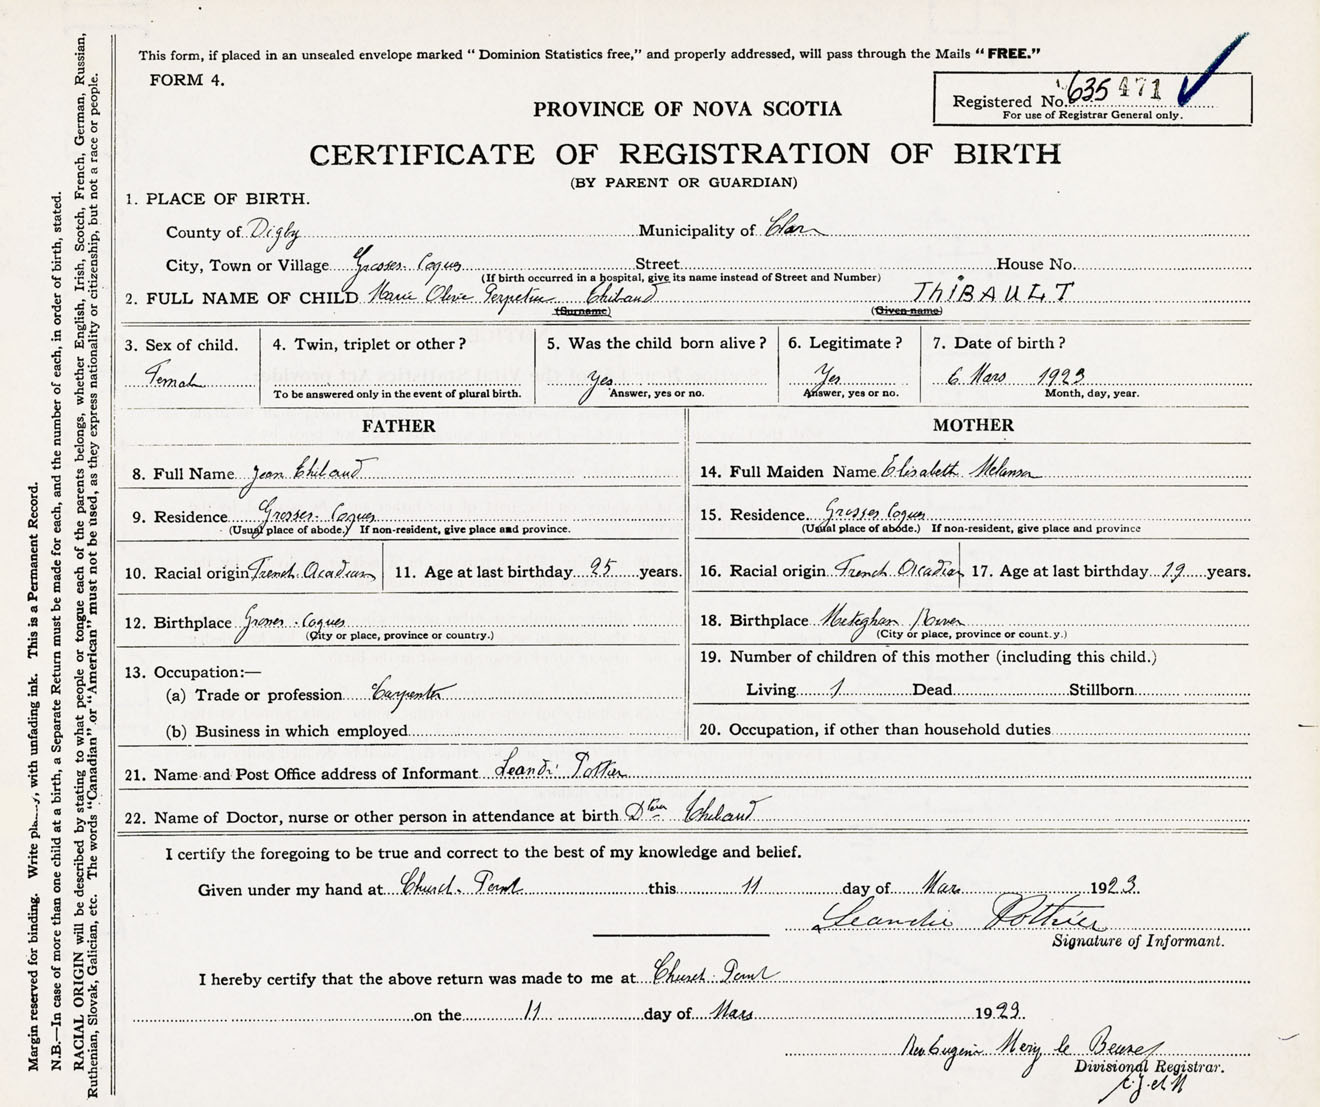 This form, if placed in an unsealed envelope marked "Dominion Statistics free," and properly addressed, will pass through the Mails "FREE."
FORM 4.
Registered No. 635471
For use of Registrar General only.
PROVINCE OF NOVA SCOTIA
CERTIFICATE OF REGISTRATION OF BIRTH
(BY PARENT OR GUARDIAN)
1. PLACE OF BIRTH.
County of Digby Municipality of Clare
City, Town or Village Grosses Coques Street House No.
(If birth occurred in a hospital, give its name instead of Street and Number)
2. FULL NAME OF CHILD Marie Olive Perpetue Thibaud THiBAULT
(Surname) (Given name)
3. Sex of child. 4. Twin, triplet or other? 5. Was the child born alive? 6. Legitimate? 7. Date of birth?
Female Yes Yes 6 Mars 1923
To be answered only in the event of plural birth. Answer, yes or no. Answer, yes or no. Month, day, year.
FATHER
8. Full Name Jean Thibaud
9. Residence Grosses-Coques
(Usual place of abode.) If non-resident, give place and province.
10. Racial origin French Acadian 11. Age at last birthday 25 years.
12. Birthplace Grosses-Coques
(City or place, province or country.)
13. Occupation:—
(a) Trade or profession Carpenter
(b) Business in which employed
MOTHER
14. Full Maiden Name Elisabeth Melanson
15. Residence Grosses Coques
(Usual place of abode.) If non-resident, give place and province
16. Racial origin French Acadian 17. Age at last birthday 19 years.
18. Birthplace Meteghan River
(City or place, province or count.y.)
19. Number of children of this mother (including this child.)
Living 1 Dead Stillborn
20. Occupation, if other than household duties
21. Name and Post Office address of Informant Leandre Pottier
22. Name of Doctor, nurse or other person in attendance at birth Thibaud
I certify the foregoing to be true and correct to the best of my knowledge and belief.
Given under my hand at Church Point this 11 day of Mars 1923.
Leandre Pothier
Signature of Informant.
I hereby certify that the above return was made to me at Church Point
on the 11 day of Mars 1923.
Rev Eugene Mery le Beuve
Divisional Registrar.
Margin reserved for binding. Write with unfading ink. This is a Permanent Record.
N.B.—In case of more than one child at a birth, a Separate Return must be made for each, and the number of each, in order of birth, stated.
RACIAL ORIGIN will be described by stating to what people or tongue each of the parents belongs, whether English, Irish, Scotch, French, German, Russian,
Ruthenian, Slovak, Galician, etc. The words "Canadian" or "American" must not be used, as they express nationality or citizenship, but not a race or people.